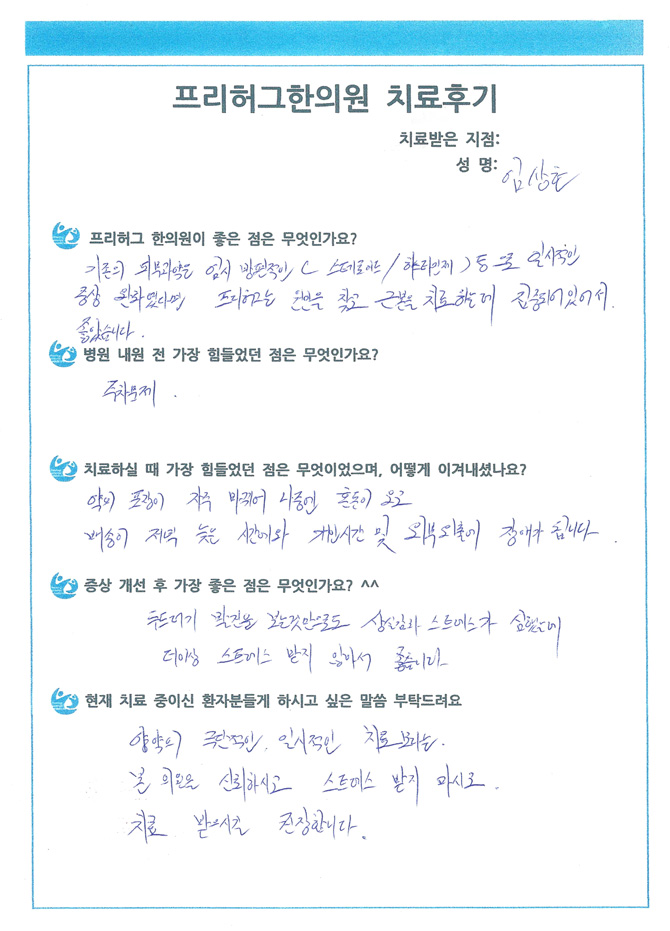 프리허그한의원 치료후기
치료받은 지점:
성 명: 임상훈
프리허그 한의원이 좋은 점은 무엇인가요?
기존의 피부과약은 임시 방편적인 ( 스테로이드 / 항히스타민제 ) 등으로 일시적인
증상 완화였다면 프리허그는 원인을 찾고 근본을 치료하는데 집중되어있어서
좋았습니다.
병원 내원 전 가장 힘들었던 점은 무엇인가요?
주차문제 .
치료하실 때 가장 힘들었던 점은 무엇이었으며, 어떻게 이겨내셨나요?
약의 포장이 자주 바뀌어 나중엔 혼돈이 오고
배송이 저녁 늦은 시간에와 개인시간 및 외부외출에 장애가 됩니다 .
증상 개선 후 가장 좋은 점은 무엇인가요? ^^
두드러기 발진을 보는것만으로도 상실감과 스트레스가 심했는데
더이상 스트레스 받지 않아서 좋습니다.
현재 치료 중이신 환자분들게 하시고 싶은 말씀 부탁드려요
양약의 극단적인, 일시적인 치료보다는.
본 의원을 신뢰하시고 스트레스 받지 마시고.
치료 받으시길 권장합니다.